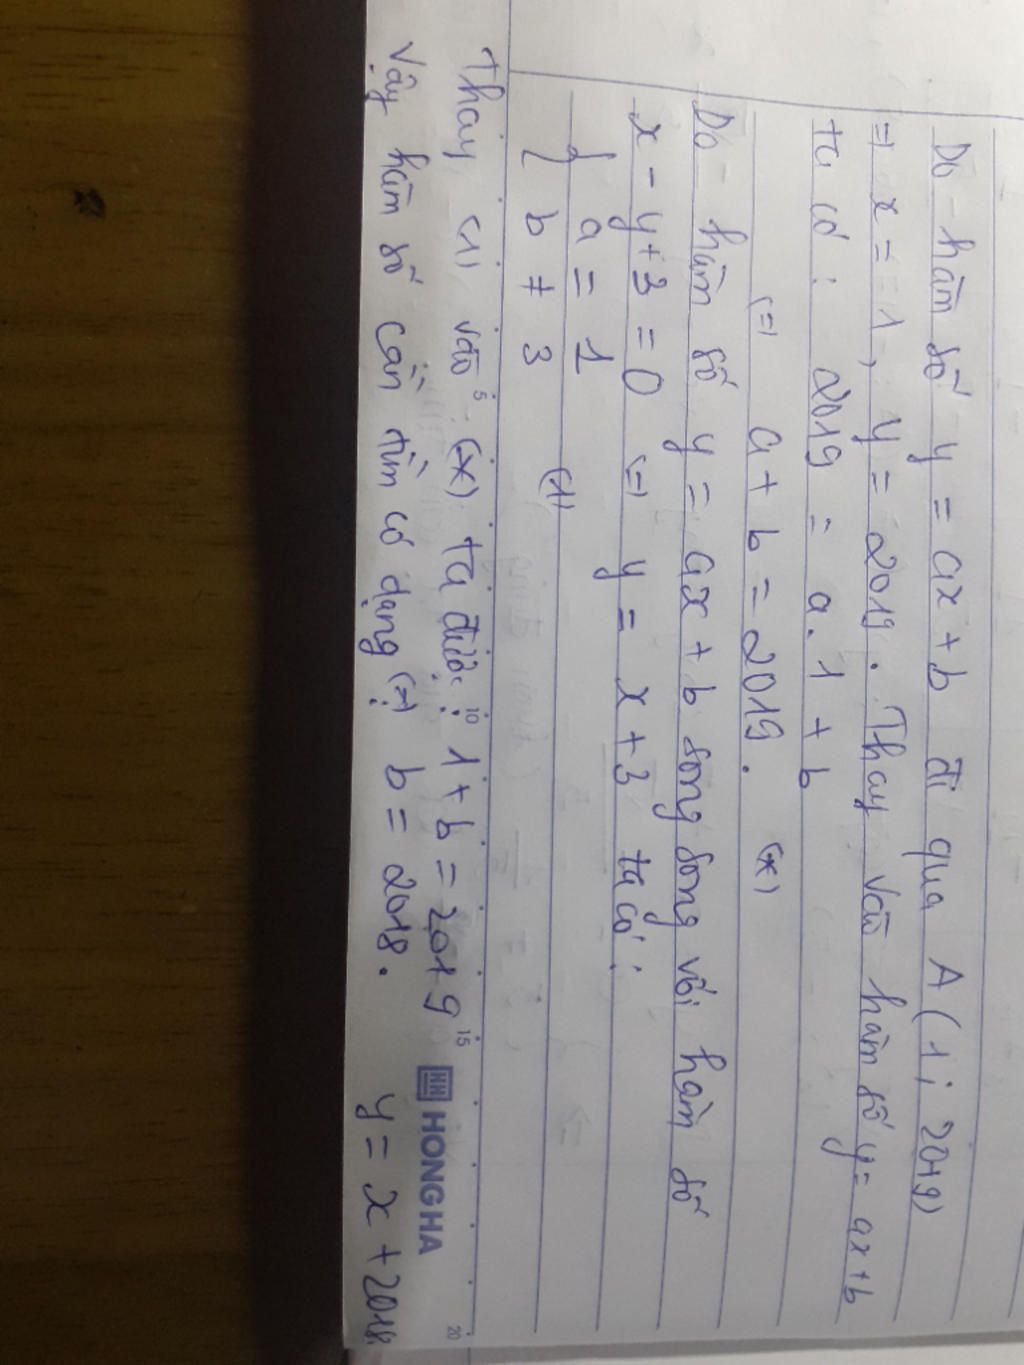 Do hàm số y = ax + b đi qua A (1; 2019)
=) x = 1, y = 2019. Thay vào hàm số y = ax + b
ta có: 2019 = a.1 + b
(=) a + b = 2019. (*)
Do hàm số y = ax + b song song với hàm số
x - y + 3 = 0 (=) y = x + 3 ta có:
{ a = 1
{ b ≠ 3 (1)
Thay (1) vào (*) ta được: 1 + b = 2019
(=) b = 2018.
Vậy hàm số cần tìm có dạng: y = x + 2018
5 10 15 20
HH HONG HA